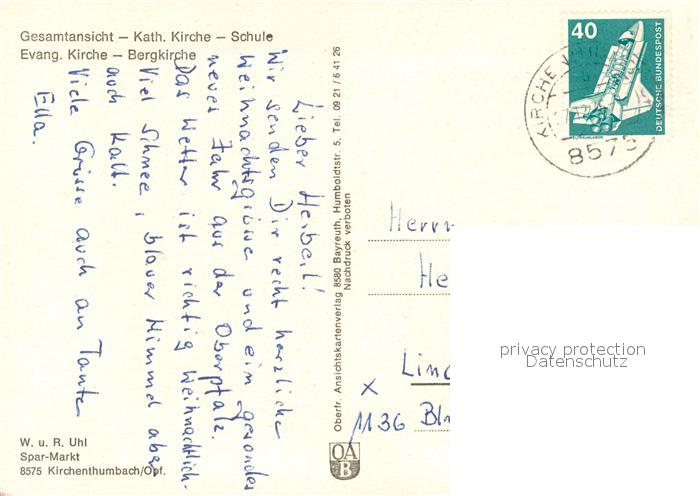 Gesamtansicht – Kath. Kirche – Schule
Evang. Kirche – Bergkirche
Lieber Heibert!
Wir senden Dir recht herzliche
Weihnachtsgrüsse und ein gesundes
neues Jahr aus der Oberpfalz.
Das Wetter ist richtig weihnachtlich.
Viel Schnee, blauer Himmel aber
auch kalt.
Viele Grüsse auch an Tante
Ella.
W. u. R. Uhl
Spar-Markt
8575 Kirchenthumbach/Opf.
Oberfr. Ansichtskartenverlag 8580 Bayreuth, Humboldtstr. 5, Tel. 09 21 / 6 41 26
Nachdruck verboten
OA
B
40
DEUTSCHE BUNDESPOST
KIRCHE
8575
Herrn
He
Lin
x
1136 Bln
privacy protection
Datenschutz